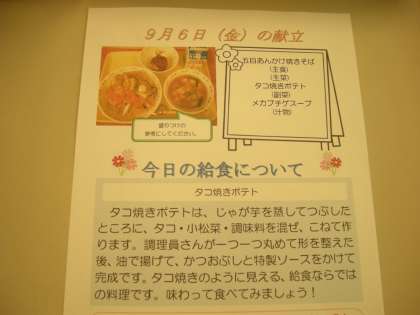 9月6日（金）の献立
五目あんかけ焼きそば
（主食）
（主菜）
タコ焼きポテト
（副菜）
メカブチゲスープ
（汁物）
盛りつけの
参考にしてください。
今日の給食について
タコ焼きポテト
タコ焼きポテトは、じゃが芋を蒸してつぶした
ところに、タコ・小松菜・調味料を混ぜ、こねて作
ります。調理員さんが一つ一つ丸めて形を整えた
後、油で揚げて、かつおぶしと特製ソースをかけて
完成です。タコ焼きのように見える、給食ならでは
の料理です。味わって食べてみましょう！